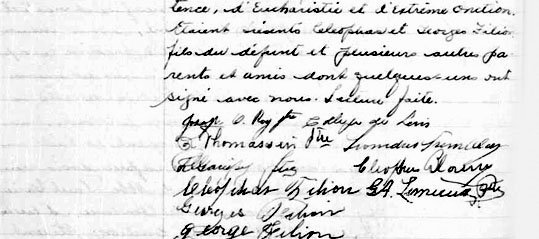 tence, d'Eucharistie et d'Extrême Onction.
Etaient présents Cléophas et Georges Filion
fils du défunt et plusieurs autres pa
rents et amis dont quelques-uns ont
signé avec nous. Lecture faite.
Joseph O. Roy Ptre Collège de Lévis
Thomassin Ptre
Cléophas
Cléophas Filion G. A. Lemieux Ptre
Georges Filion
George Filion